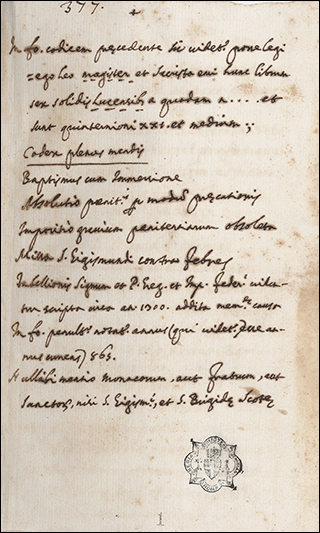 377.
In fo. codicem precedente sic videt.r pone legi
= ego leo magister et Scriista emi hunc librum
sex solidis Lucensib a quodam n.... et
sunt quinternioni xxi. et medium ;
Codex plenus mendis
Baptismus cum Immersione
Absolutio pænit.s p modu precationis
Impositio gravium pænitentiarum obsoleta
Missa S. Sigismundi contra febres
Tabellionis Signum et P. Reg. et Imp. Federi viden-
tur scripta circa an 1300. addita mem.
In fo. penult.o notat. annus (qui videt.
nus currens) 865.
N ullibi mentio monacorum, aut fratrum, aut
Sanctor, nisi S. Sigism.i, et S. Brigide Scotæ
1